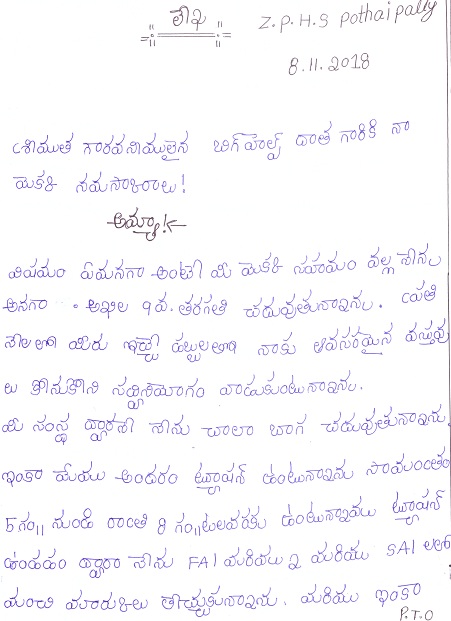 లేఖ
Z.P.H.S Pothaipally
8.11.2018
శ్రీయుత గౌరవనీయులైన బిగ్‌హెల్ప్ దాత గారికి నా
యొక్క నమస్కారాలు!
అమ్మా!
విషయం ఏమనగా అంటే మీ యొక్క సహాయం వల్ల నేను
అనగా అఖిల 9వ. తరగతి చదువుతున్నాను. ప్రతి
నెలలో మీరు ఇచ్చే డబ్బులతో నాకు అవసరమైన వస్తువు
లు కొనుకొని సద్వినియోగం వాడుకుంటున్నాను.
మీ సంస్థ ద్వారానే నేను చాలా బాగ చదువుతున్నాను.
ఇంకా మేము అందరం ట్యూషన్ ఉంటున్నాము సాయంత్రం
5గం|| నుండి రాత్రి 8 గం||లవరకు ఉంటున్నాము ట్యూషన్
ఉండడం ద్వారా నేను FA1 మరియు 2 మరియు SA1 లలో
మంచి మార్కులు తెచ్చుకున్నాను. మరియు ఇంకా
P.T.O